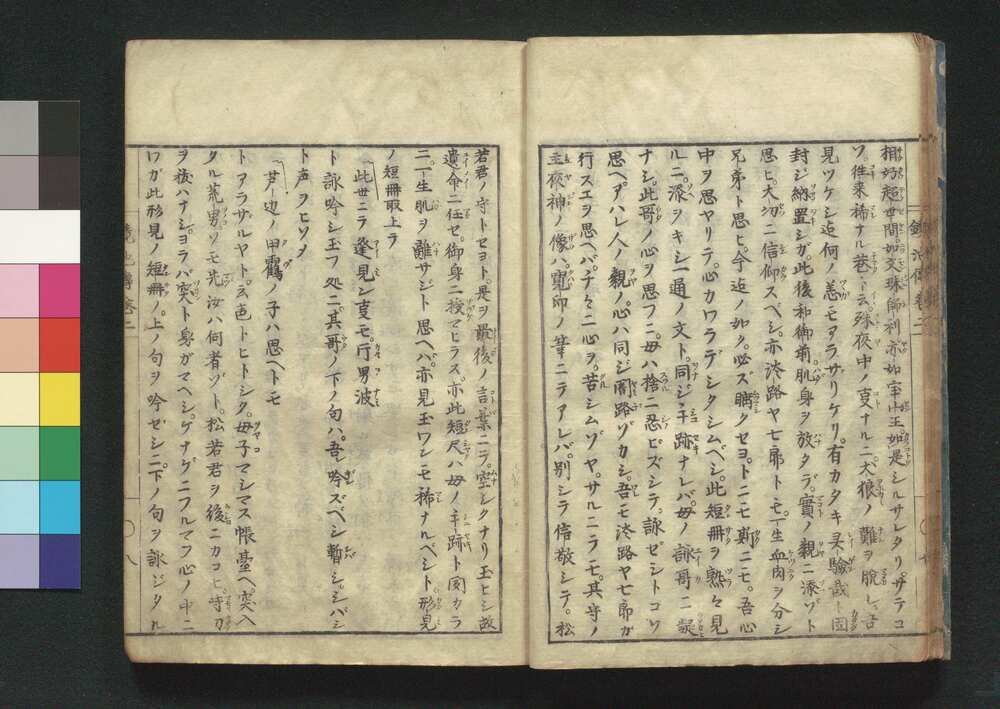 相好超世間如文珠師利亦如宰山王如是シルサレタリサテコ
ソ。往来稀ナル巷ト云。殊夜中ノ亊ナルニ犬狼ノ難ヲ脱レ。吾
見ツケシ迠何ノ恙モアラザリケリ。有カタキ灵驗哉ト固
封ジ納置シガ。此後和御前。肌身ヲ放タデ。實ノ親ニ添ゾト
思ヒ。大切ニ信仰スベシ。亦淡路ヤ七郎トモ。一生血肉ヲ分シ
兄弟ト思ヒ。今迠ノ如ク。必ズ睛クセヨ。トニモ斯ニモ。吾心
中ヲ思ヤリテ。心カワラデシタシムベシ。此短冊ヲ熟々見
ルニ。添ヲキシ一通ノ文ト。同シ手跡ナレバ。母ノ詠哥ニ疑
ナシ。此哥ノ心ヲ思フニ。母ハ捨ニ忍ビズシテ。詠ゼシトコソ
思ヘ。アハレ人ノ親ノ。心ハ同ジ闇路ゾカシ。吾モ淡路ヤ七郎ガ
行スエヲ思ヘバ。チ々ニ心ヲ。苦シムゾヤ。サルニテモ。其守ノ
主夜神ノ像ハ。寛印ノ筆ニテアレバ。別シテ信敬シテ。松
若君ノ守トセヨト。是ヲ最後ノ言葉ニテ。空シクナリ玉ヒシ故
遺命ニ任セ。御身ニ授マヒラス。亦此短尺ハ母ノ手跡ト聞カラ
ニ。一生肌ヲ離サジト思ヘバ。亦見玉ワンモ稀ナルベシト形見
ノ短冊取上テ
此世ニテ逢見ン亊モ。片男波
ト詠吟シ玉フ処ニ。其哥ノ下ノ句ハ。吾吟ズベシ暫シ々バシ
ト声ヲヒソメ
芦辺ノ田靏ノ子ハ思ヘトモ
トアラザルヤト。云色トヒトシク。母子マシマス帳臺ヘ。突入
タル荒男ソモ先汝ハ何者ゾト。松若君ヲ後ニカコヒ。守刀
ヲ抜ハナシ。ヨラバ突ト身ガマヘシ。ケナゲニフルマフ心ノ中ニ
ワガ此形見ノ短冊ノ。上ノ句ヲ吟ゼシニ。下ノ句ヲ詠ジタル